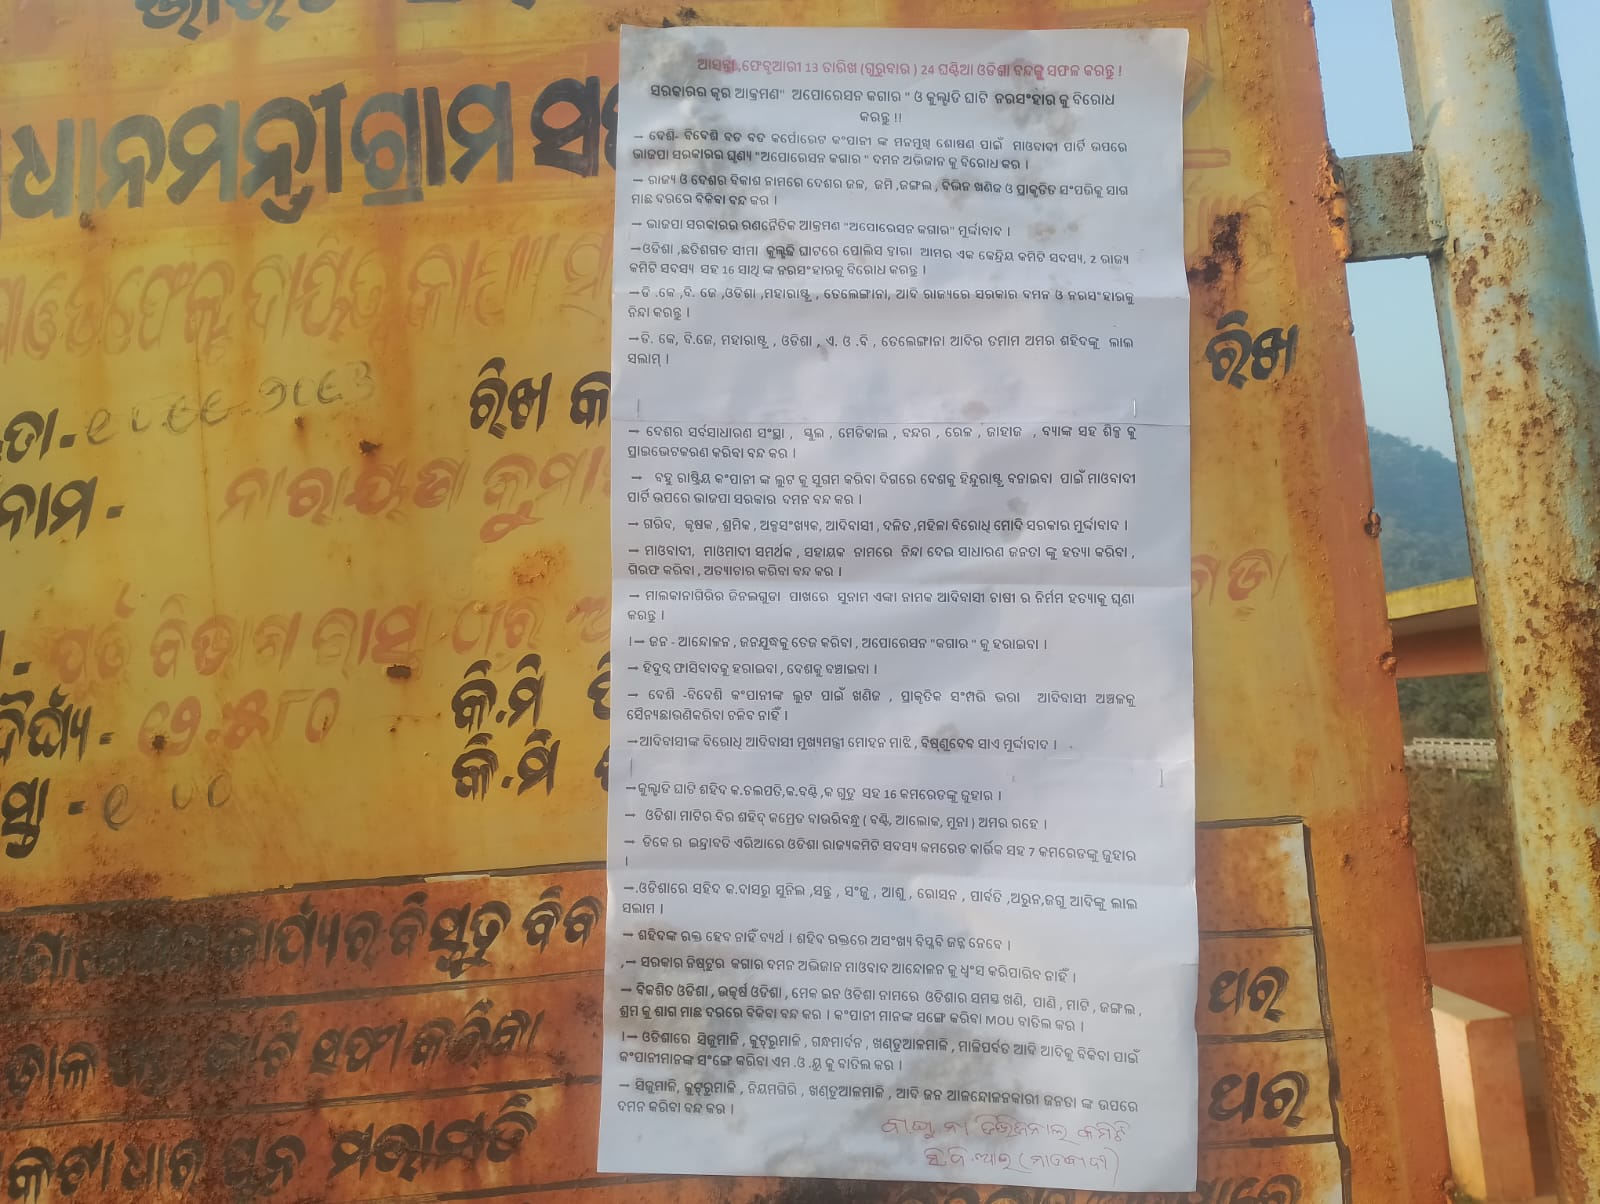 ଧାନମନ୍ତ୍ରୀ ଗ୍ରାମ
ରିଖ
ରିଖ
ନାମ -
ନାରାୟଣ କୁମା
କି.ମି
କି.ମି
ଥର
ଥର
ଆସନ୍ତା ,ଫେବୃଆରୀ 13 ତାରିଖ (ଗୁରୁବାର ) 24 ଘଣ୍ଟିଆ ଓଡିଶା ବନ୍ଦକୁ ସଫଳ କରନ୍ତୁ !
ସରକାରର କ୍ରୁର ଆକ୍ରମଣ" ଅପୋରେସନ କଗାର " ଓ କୁଲ୍ହାଡି ଘାଟି ନରସଂହାର କୁ ବିରୋଧ
କରନ୍ତୁ !!
→ ଦେଶି- ବିଦେଶି ବଡ ବଡ କର୍ପୋରେଟ କଂପାନୀ ଙ୍କ ମନମୁଖି ଶୋଷଣ ପାଇଁ ମାଓବାଦୀ ପାର୍ଟି ଉପରେ
ଭାଜପା ସରକାରର ଘୃଣ୍ୟ "ଅପୋରେସନ କଗାର " ଦମନ ଅଭିଜାନ କୁ ବିରୋଧ କର ।
→ ରାଜ୍ୟ ଓ ଦେଶର ବିକାଶ ନାମରେ ଦେଶର ଜଳ, ଜମି ,ଜଙ୍ଗଲ , ବିଭିନ ଖଣିଜ ଓ ପ୍ରାକୃତିତ ସଂପତିକୁ ସାଗ
ମାଛ ଦରରେ ବିକିବା ବନ୍ଦ କର ।
→ ଭାଜପା ସରକାରର ରଣନୈତିକ ଆକ୍ରମଣ "ଅପୋରେସନ କଗାର" ମୁର୍ଦ୍ଦାବାଦ ।
→ଓଡିଶା ,ଛତିଶଗଡ ସୀମା କୁଲ୍ହଡି ଘାଟରେ ପୋଲିସ ଦ୍ୱାରା ଆମର ଏକ କେନ୍ଦ୍ରିୟ କମିଟି ସଦସ୍ୟ, 2 ରାଜ୍ୟ
କମିଟି ସଦସ୍ୟ ସହ 16 ସାଥି ଙ୍କ ନରସଂହାରକୁ ବିରୋଧ କରନ୍ତୁ ।
→ଡି .କେ ,ବି. ଜେ ,ଓଡିଶା ,ମହାରାଷ୍ଟ୍ର , ତେଲେଙ୍ଗାନା, ଆଦି ରାଜ୍ୟରେ ସରକାର ଦମନ ଓ ନରସଂହାରକୁ
ନିନ୍ଦା କରନ୍ତୁ ।
→ଡି. କେ, ବି.ଜେ, ମହାରାଷ୍ଟ୍ର , ଓଡିଶା , ଏ. ଓ .ବି , ତେଲେଙ୍ଗାନା ଆଦିର ତମାମ ଅମର ଶହିଦଙ୍କୁ ଲାଲ
ସଲାମ୍ ।
→ ଦେଶର ସର୍ବସାଧାରଣ ସଂସ୍ଥା , ସ୍କୁଲ , ମେଡିକାଲ , ବନ୍ଦର , ରେଳ , ଜାହାଜ , ବ୍ୟାଙ୍କ ସହ ଶିଳ୍ପ କୁ
ପ୍ରାଇଭେଟକରଣ କରିବା ବନ୍ଦ କର ।
→ ବହୁ ରାଷ୍ଟ୍ରିୟ କଂପାନୀ ଙ୍କ ଲୁଟ କୁ ସୁଗମ କରିବା ଦିଗରେ ଦେଶକୁ ହିନ୍ଦୁରାଷ୍ଟ୍ର ବନାଇବା ପାଇଁ ମାଓବାଦୀ
ପାର୍ଟି ଉପରେ ଭାଜପା ସରକାର ଦମନ ବନ୍ଦ କର ।
→ ଗରିବ, କୃଷକ , ଶ୍ରମିକ , ଅଳ୍ପସଂଖ୍ୟକ, ଆଦିବାସୀ , ଦଳିତ ,ମହିଳା ବିରୋଧି ମୋଦି ସରକାର ମୁର୍ଦ୍ଦାବାଦ ।
→ ମାଓବାଦୀ, ମାଓମାଦୀ ସମର୍ଥକ , ସହାୟକ ନାମରେ ନିନ୍ଦା ଦେଇ ସାଧାରଣ ଜନତା ଙ୍କୁ ହତ୍ୟା କରିବା ,
ଗିରଫ କରିବା , ଅତ୍ୟାଚାର କରିବା ବନ୍ଦ କର ।
→ ମାଲକାନାଗିରିର ଜିନଲଗୁଡା ପାଖରେ ସୁନାମ ଏଙ୍କା ନାମକ ଆଦିବାସୀ ଚାଷୀ ର ନିର୍ମମ ହତ୍ୟାକୁ ଘୃଣା
କରନ୍ତୁ ।
।→ ଜନ - ଆନ୍ଦୋଳନ , ଜନଯୁଦ୍ଧକୁ ତେଜ କରିବା , ଅପୋରେସନ "କଗାର " କୁ ହରାଇବା ।
→ ହିନ୍ଦୁତ୍ୱ ଫାସିବାଦକୁ ହରାଇବା , ଦେଶକୁ ବଞ୍ଚାଇବା ।
→ ଦେଶି -ବିଦେଶି କଂପାନୀଙ୍କ ଲୁଟ ପାଇଁ ଖଣିଜ , ପ୍ରାକୃତିକ ସଂମ୍ପତି ଭରା ଆଦିବାସୀ ଅଞ୍ଚଳକୁ
ସୈନ୍ୟଛାଉଣିକରିବା ଚଳିବ ନାହିଁ ।
→ଆଦିବାସୀଙ୍କ ବିରୋଧି ଆଦିବାସୀ ମୁଖ୍ୟମନ୍ତ୍ରୀ ମୋହନ ମାଝି , ବିଷ୍ଣୁଦେବ ସାଏ ମୁର୍ଦ୍ଦାବାଦ ।
→କୁଲ୍ହାଡି ଘାଟି ଶହିଦ କ.ଚଲପତି,କ.ବଣ୍ଟି ,କ ଗୁଡୁ ସହ 16 କମରେଡଙ୍କୁ ଜୁହାର ।
→ ଓଡିଶା ମାଟିର ବିର ଶହିଦ୍ କମ୍ରେଡ ବାଉରିବନ୍ଧୁ ( ବଣ୍ଟି, ଆଲୋକ, ମୁନା ) ଅମର ରହେ ।
→ ଡିକେ ର ଇନ୍ଦ୍ରାବତି ଏରିଆରେ ଓଡିଶା ରାଜ୍ୟକମିଟି ସଦସ୍ୟ କମରେଡ କାର୍ତ୍ତିକ ସହ 7 କମରେଡଙ୍କୁ ଜୁହାର
।
→.ଓଡିଶାରେ ସହିଦ କ.ଦାସରୁ ସୁନିଲ ,ସନ୍ତୁ , ସଂଜୁ , ଆଶୁ , ରୋସନ , ପାର୍ବତି ,ଅରୁନ,ଜଗୁ ଆଦିଙ୍କୁ ଲାଲ
ସଲାମ ।
→ ଶହିଦଙ୍କ ରକ୍ତ ହେବ ନାହିଁ ବ୍ୟର୍ଥ । ଶହିଦ ରକ୍ତରେ ଅସଂଖ୍ୟ ବିପ୍ଳବି ଜନ୍ମ ନେବେ ।
,→ ସରକାର ନିଷ୍ଟୁର କଗାର ଦମନ ଅଭିଜାନ ମାଓବାଦ ଆନ୍ଦୋଳନ କୁ ଧ୍ୱଂସ କରିପାରିବ ନାହିଁ ।
→ ବିକଶିତ ଓଡିଶା , ଉତ୍କର୍ଷ ଓଡିଶା , ମେକ ଇନ ଓଡିଶା ନାମରେ ଓଡିଶାର ସମସ୍ତ ଖଣି, ପାଣି , ମାଟି , ଜଙ୍ଗଲ ,
ଶ୍ରମ କୁ ଶାଗ ମାଛ ଦରରେ ବିକିବା ବନ୍ଦ କର । କଂପାନୀ ମାନଙ୍କ ସଙ୍ଗେ କରିବା MOU ବାତିଲ କର ।
।→ ଓଡିଶାରେ ସିଜୁମାଳି , କୁଟ୍ରୁମାଳି , ଗନ୍ଧମାର୍ଦନ , ଖଣ୍ଡୁଆଳମାଳି , ମାଳିପର୍ବତ ଆଦି ଆଦିକୁ ବିକିବା ପାଇଁ
କଂପାନୀମାନଙ୍କ ସଂଙ୍ଗେ କରିବା ଏମ .ଓ .ୟୁ କୁ ବାତିଲ କର ।
→ ସିଜୁମାଳି, କୁଟ୍ରୁମାଳି , ନିୟମଗିରି , ଖଣ୍ଡୁଆଳମାଳି , ଆଦି ଜନ ଆଳନ୍ଦୋଳନକାରୀ ଜନତା ଙ୍କ ଉପରେ
ଦମନ କରିବା ବନ୍ଦ କର ।
ଡିଭିଜନାଲ କମିଟି
ସି.ପି.ଆଇ (ମାଓବାଦୀ)